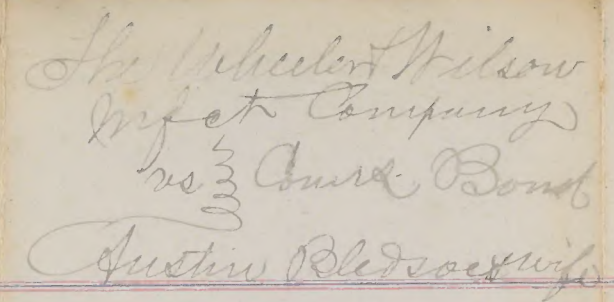 The Wheeler & Wilson
Mfct Company
vs Bond
Austin Bledsoe & wife